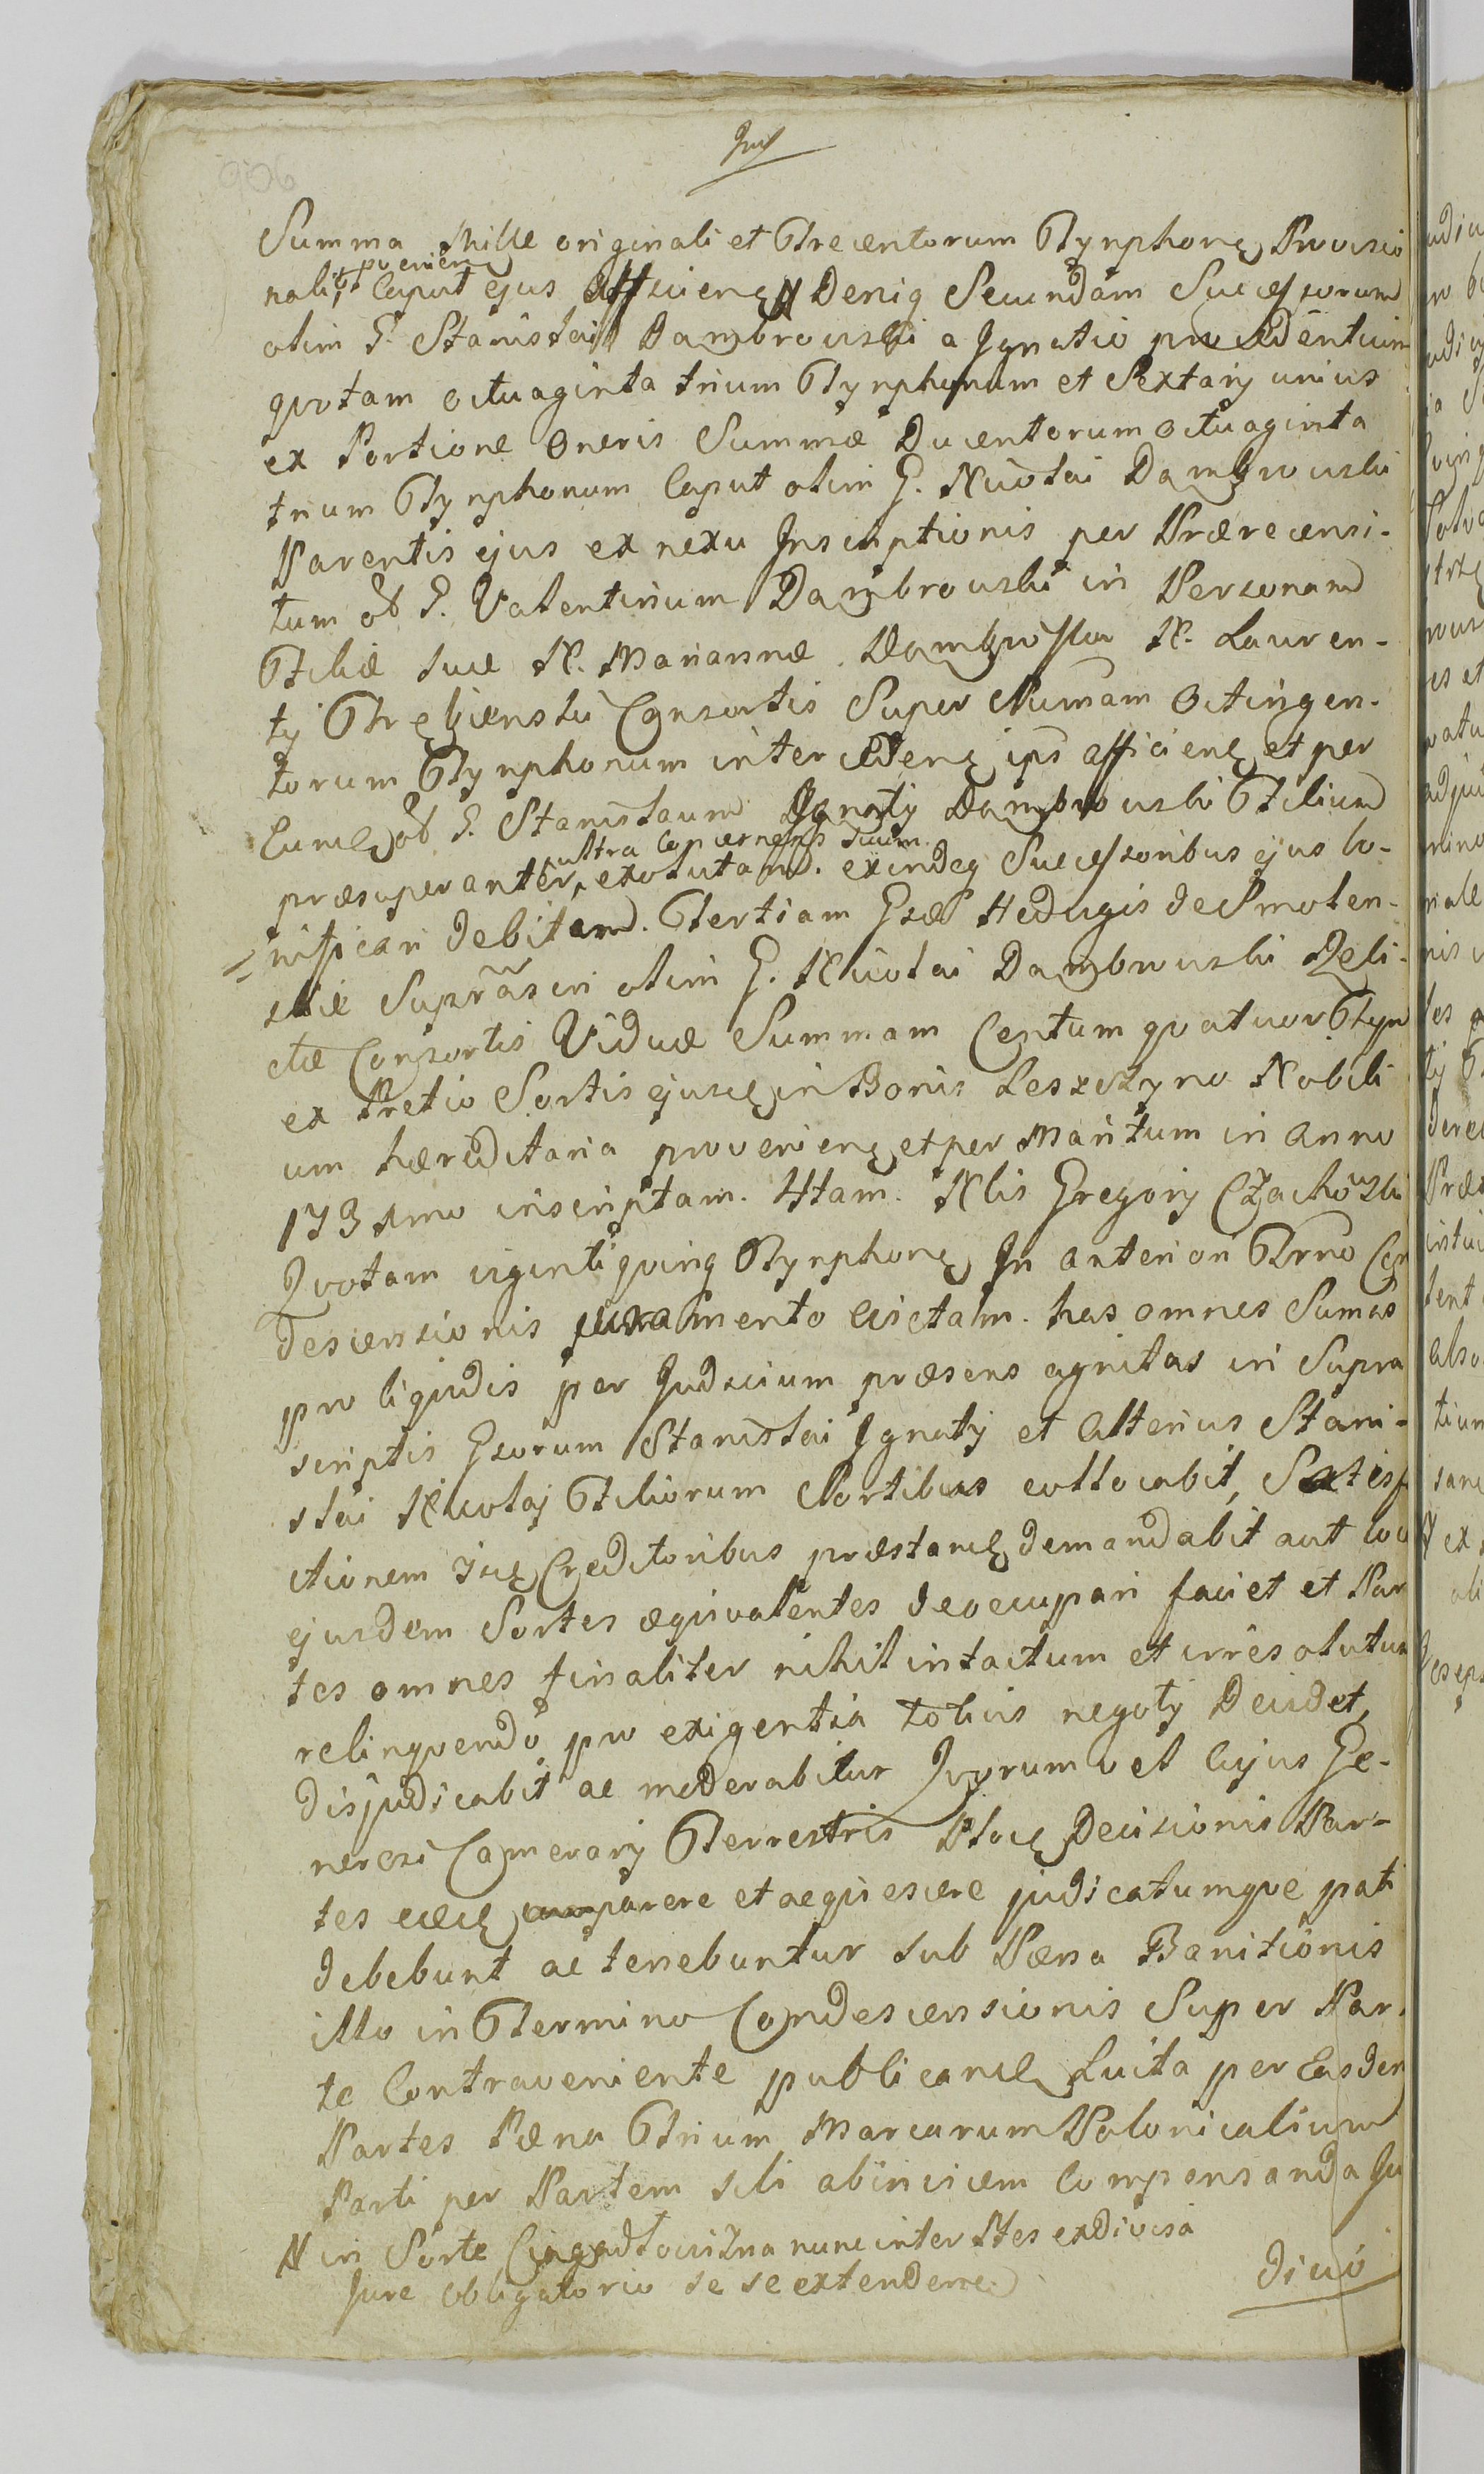 906
Summa Mille originali et Trecentorum Tynphonẹ Provisio
provenien
nalibʒ Caput ejus afficienẹ # Deniq Secundam Successorum
olim G. Stanislai Dambrowski a Ignatio procedentium
quotam octuaginta trium Tynphonum et Sextarÿ unius
ex Portione Oneris Summæ Ducentorum octuaginta
trium Tynphonum Caput olim G. Nicolai Dambrowski
Parentis ejus ex nexu Inscriptionis per Prærecensi-
tum ol G. Valentinum Dambrowski in Personam
Filiæ suæ N. Mariannæ Dambroska N. Lauren-
tÿ Consortis Super Sumam Octingen-
torum Tynphonum intercedenẹ ips afficienẹ et per
Eund ol G. Stanislaum Ignatÿ Dambrowski Filium
ultra concernens Suum
præsuperanter, exolutam. exindeq Successoribus ejus bo-
nificari debitam. Tertiam Gsæ Hedvigis de Smolen-
skie Supra in olim G. Nicolai Dambrowski Reli-
ctæ Consortis Viduæ Summam Centum quatuor Tynp
ex Pretio Sortis ejusd in Bonis Leszczyno Nobili
um hæreditaria provenienẹ et per Maritum in Anno
173 inscriptam. 4tam. Nlis Gregorÿ Czachoski
Quotam viginti quinq Tynphonẹ In anteriori Trno Con
descensionis juramento evictam. has omnes Sumas
pro liquidis per Judicium præsens agnitas in Supra
scriptis Gsorum Stanislai Ignatÿ et Alterius Stani-
slai Nicolaj Filiorum Sortibus collocabit, Satisf
ctionem Creditoribus præstand demandabit aut loco
ejusdem Sortes æquivalentes deoccupari faciet et Par
tes omnes finaliter nihil intactum et irresolutum
relinquendo pro exigentia totius negotÿ Decidet,
disjudicabit ac moderabitur Quorum vel Cujus Ge-
nerosi Camerarÿ Terrestris Decisionis Par-
tes parere et acquiescere judicatumque pati
debebunt ac tenebuntur sub Pæna Banitionis
illo in Termino Condescensionis Super Par-
te Contraveniente publicand Luita per Easdem
Partes Pæna Trium Marcarum Polonicalium
Parti per Partem sibi abinvicem Compensanda Ju
# in Sorte nunc inter Ptes exdivisa
Jure obligatorio se se extendente
dicio